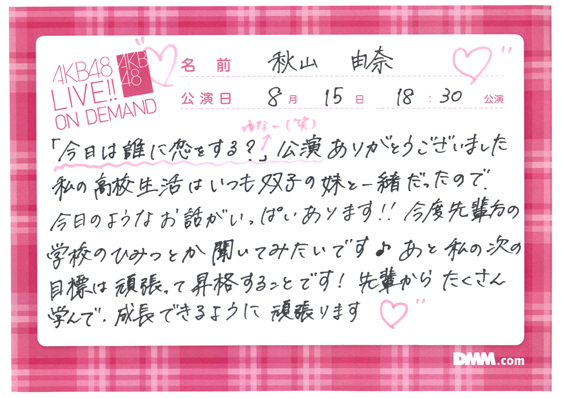 AKB48
LIVE!!
ON DEMAND
AKB
48
名前 秋山 由奈
公演日 8月 15日 18:30 公演
ゆなー(笑)
「今日は誰に恋をする?」公演ありがとうございました
私の高校生活はいつも双子の妹と一緒だったので、
今日のようなお話がいっぱいあります!! 今度先輩方の
学校のひみつとか聞いてみたいです♪ あと私の次の
目標は頑張って昇格することです! 先輩からたくさん
学んで、成長できるように頑張ります
DMM.com